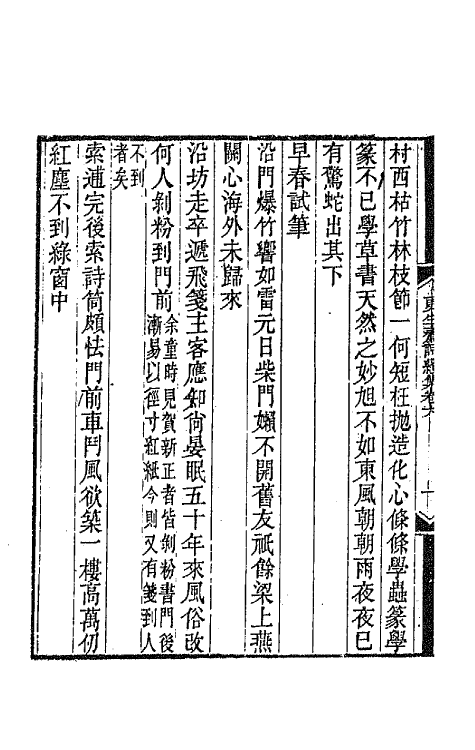 村西枯竹林枝節一何短枉抛造化心條條學蟲篆學
篆不已學草書天然之妙旭不如東風朝朝雨夜夜已
有驚蛇出其下
早春試筆
沿門爆竹響如雷元日柴門嬾不開舊友祇餘梁上燕
關心海外未歸來
沿坊走卒遞飛箋主客應知尙晏眠五十年來風俗改
何人剝粉到門前余童時見賀新正者皆剝粉書門後
漸易以徑寸紅紙今則又有箋到人
不到
者矣
索逋完後索詩筒頗怯門前車鬥風欲築一樓高萬仞
紅塵不到綠窗中